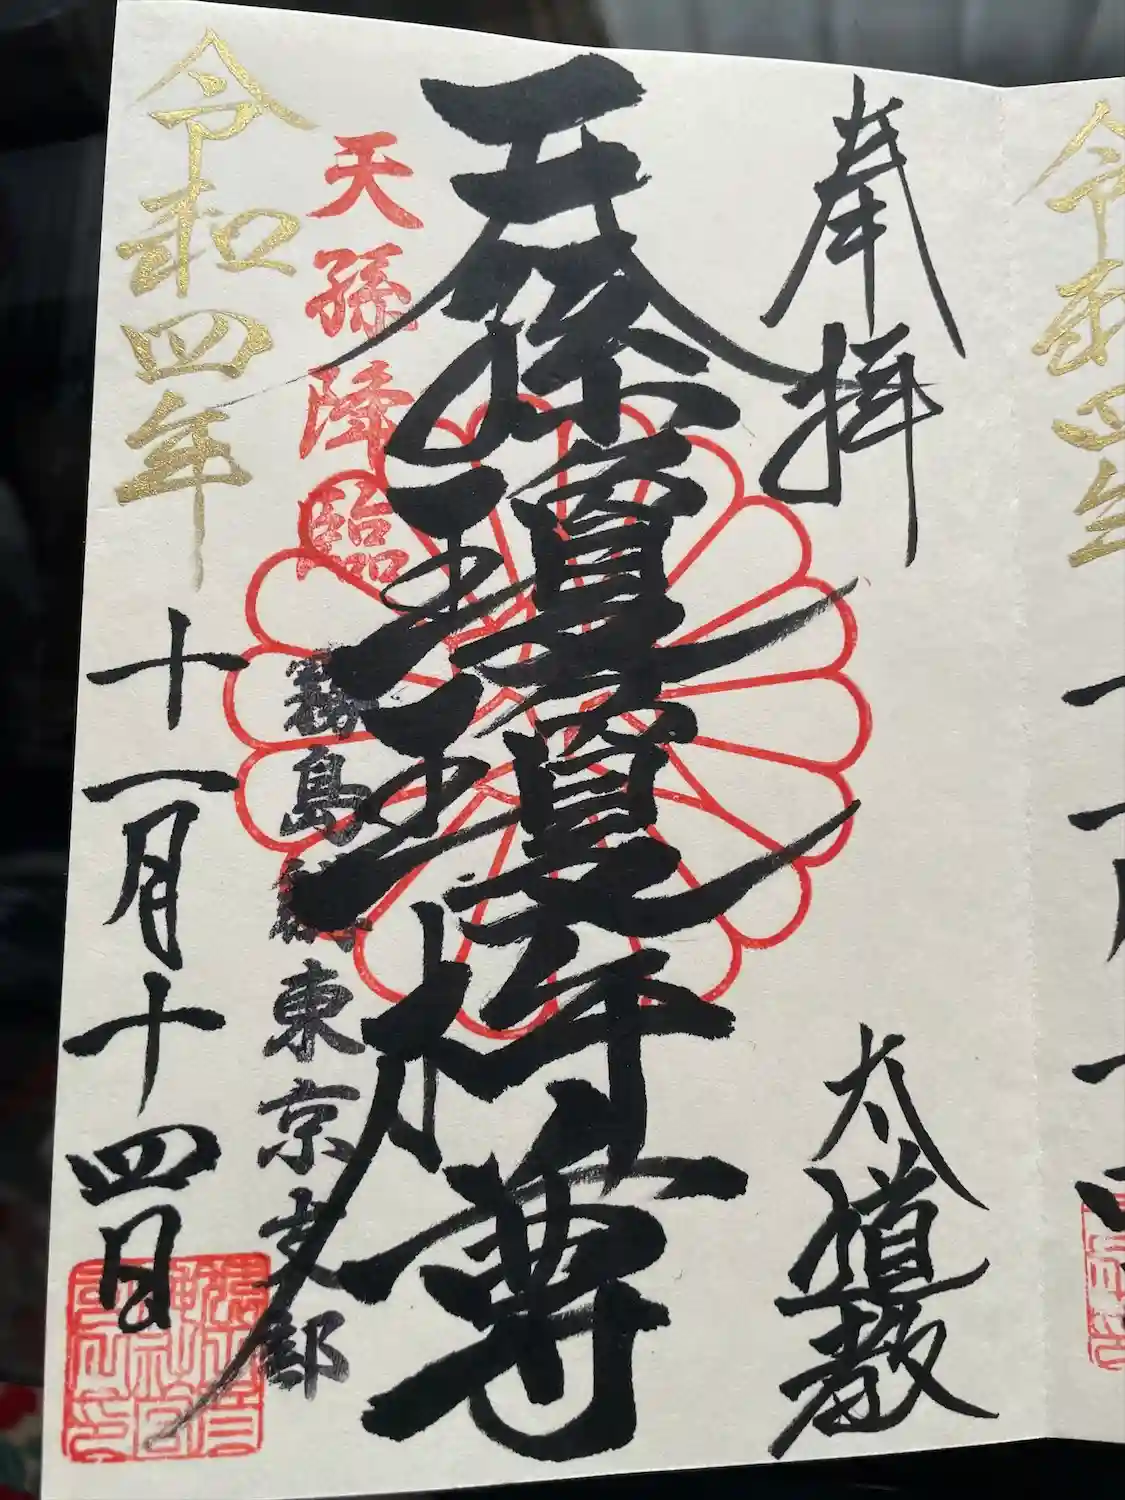 奉拝
太道教
天孫瓊瓊杵尊
天孫降臨
霧島
東京支部
令和四年
十一月十四日